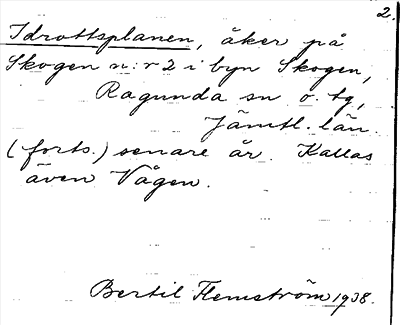 2.
Idrottsplanen, åker på
Skogen n:r 2 i byn Skogen,
Ragunda sn o. tg,
Jämtl. län.
(forts.) senare år. Kallas
även Vågen.
Bertil Flemström 1938.